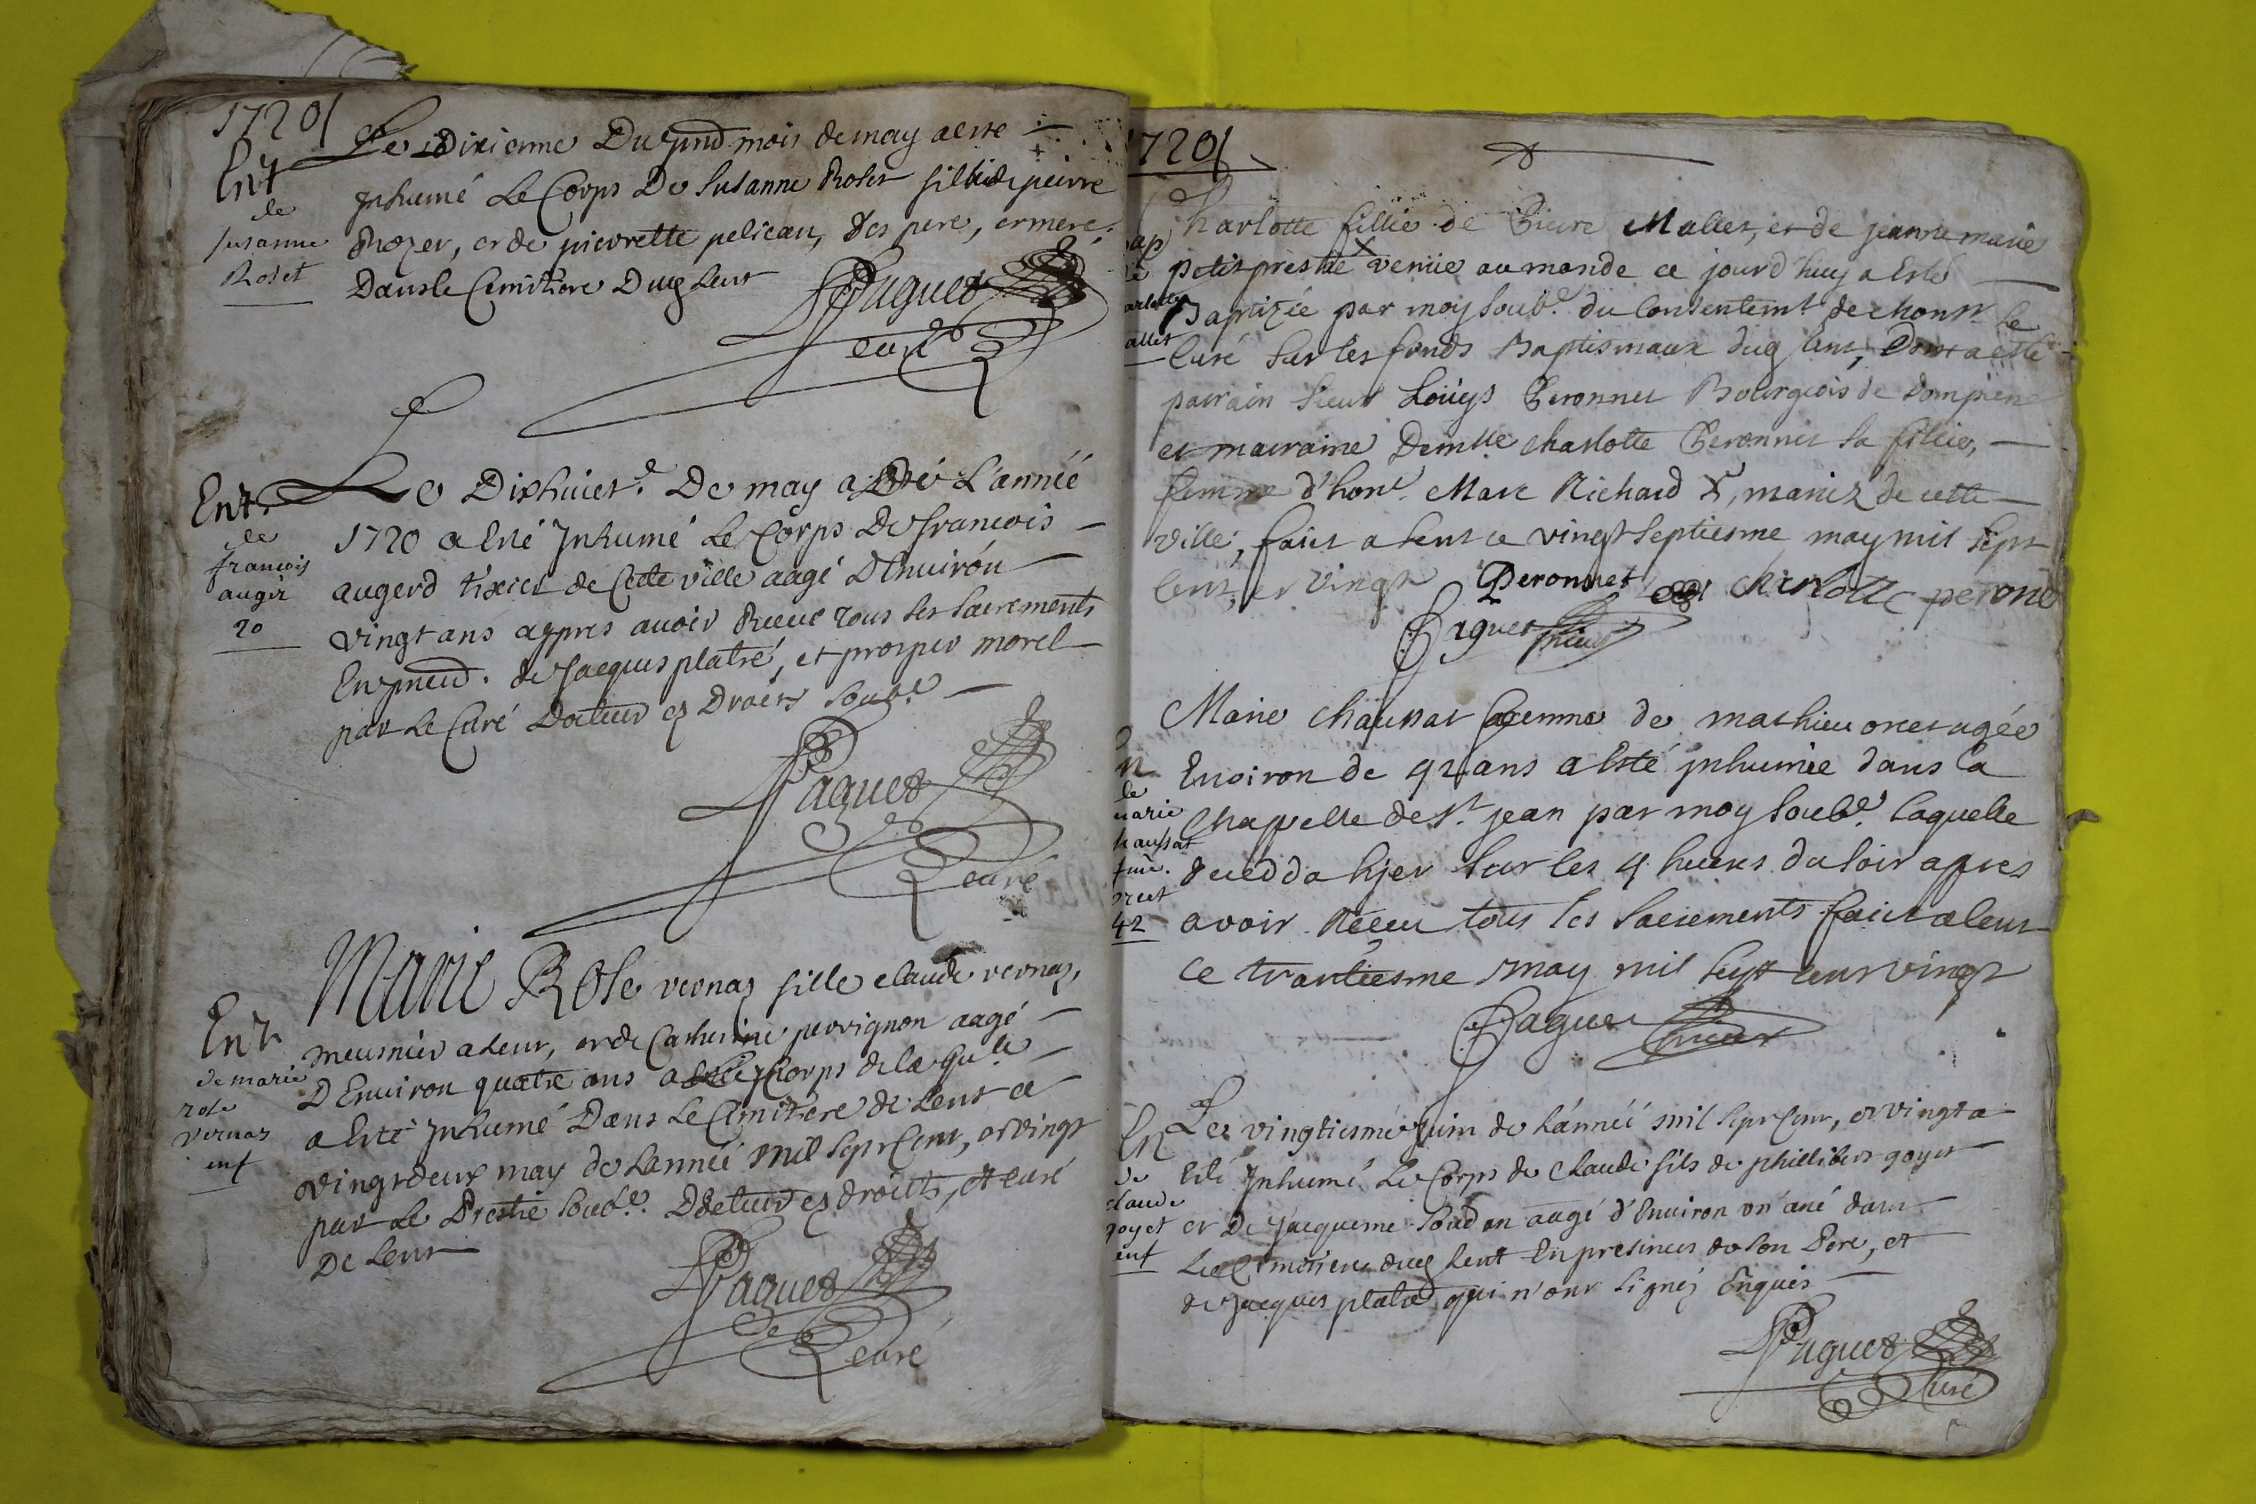 1720
Ent
de
susanne
Roset
Le Dixieme Du pnd mois de may a esté
Inhumé Le Corps De Susanne Roset fillie de pierre
Rozer, et de pierrette pelican, Ses pere, et mere,
Dans le Cimitiere Dud Lent
Paguet
curé
Ent.
de
francois
augir
20
Le Dixhuict.e De may L'année
1720 a Esté Inhumé Le Corps De francois
augerd tixier de Cette ville aagé D'Environ
vingt ans appres avoir Receu tous Ses Sacrements
En pnced. de Jacques platre, et prosper morel
par Le Curé Docteur ez Droicts Soub.é
Paguet
Curé
Ent
de marie
rose
vernaz
enf
Marie Rose vernaz fille claude vernaz,
meusnier a Lent, et de Catherine perrignon aagé
D'Environ quatre ans corps de laqu.le
a Esté Inhumé Dans Le Cimitiere de Lent ce
vingt deux may de Lannée Mil Sept Cent, et vingt
par Le Prestre Soub.é Docteur ez droicts, et curé
De Lent
Paguet
Curé
1720
Charlotte fillie de Pierre Mallet, et de jeanne marie
petit presde venüe au monde ce jourd'huy a Esté
Baptizée par moy Soub.é du Consentem.t de mons.r Le
Curé Sur les fonds Baptismaux dud Lent, Dont a esté
parrain Sieur Loüys Peronnet Bourgeois de dompierre
et marraine Dem.lle charlotte Peronnet Sa fillie,
femme d'hon.t Marc Richard, mariez de cette
ville, faict a Lent ce vingt Septiesme may mil Sept
Cent, et vingt Peronnet charlotte perone
Paguet
vicaire
Marie chaussat femme de mathieu orcet agée
Environ de 42 ans a Esté inhumée dans la
Chapelle de S.t jean par moy Soub.é Laquelle
deceda hier Sur les 4 heures du Soir apres
avoir Receu tous les Sacrements faict a Lent
ce trantiesme may mil Sept cent vingt
de
marie
chaussat
fme.
orcet
42
Paguet
vicaire
En
de
claude
goyet
enf
Le vingtiesme juin de L'année mil Sept Cent, et vingt a
Esté Inhumé Le Corps de Claude fils de phillibert goyet
et De Jacqueme Soudan aagé d'Environ un ané dans
Le Cimitiere dud Lent En presences de Son Pere, et
de Jacques platre qui n'ont Signéz Enquis
Paguet
Curé